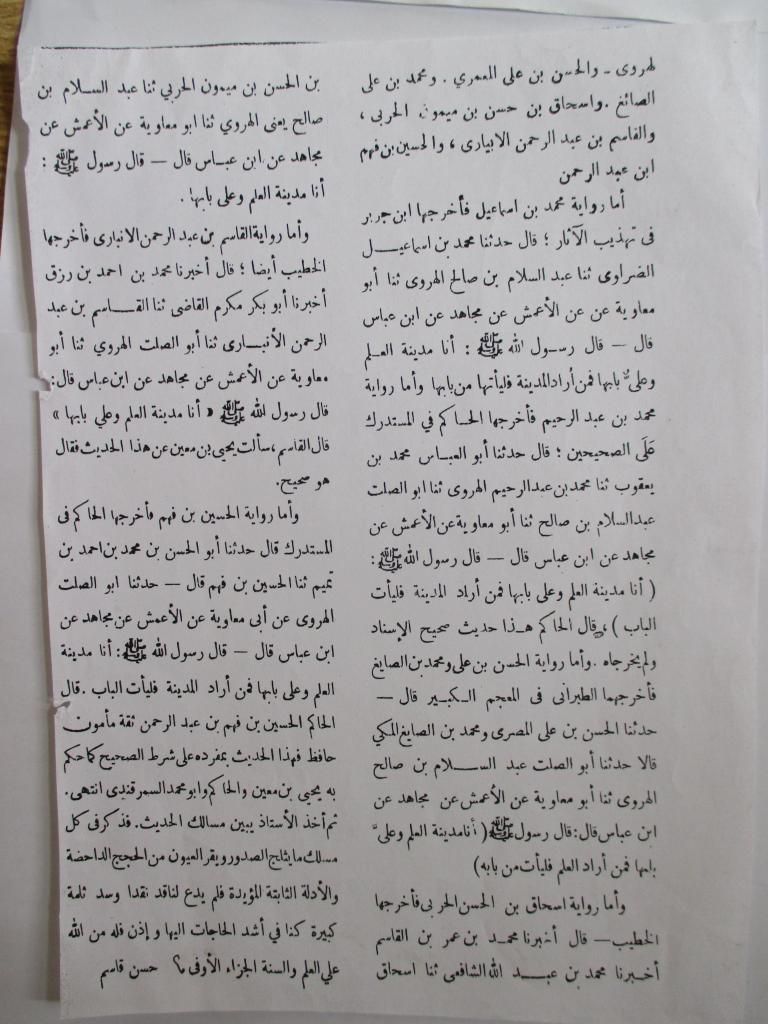 لهروى - والحسن بن على المعمري . ومحمد بن على
الصائغ . واسحاق بن حسن بن ميمون الحربى ،
والقاسم بن عبد الرحمن الابيارى ، والحسين بن فهم
ابن عبد الرحمن
أما رواية محمد بن اسماعيل فأخرجها ابن جرير
فى تهذيب الآثار ؛ قال حدثنا محمد بن اسماعيل
الضراوى ثنا عبد السلام بن صالح الهروى ثنا أبو
معاوية عن عن الأعمش عن مجاهد عن ابن عباس
قال — قال رسول الله ﷺ : أنا مدينة العلم
وعلىٌّ بابها فمن أراد المدينة فليأتها من بابها وأما رواية
محمد بن عبد الرحيم فأخرجها الحاكم في المستدرك
عَلَى الصحيحين ؛ قال حدثنا أبو العباس محمد بن
يعقوب ثنا محمد بن عبد الرحيم الهروى ثنا ابو الصلت
عبد السلام بن صالح ثنا أبو معاوية عن الأعمش عن
مجاهد عن ابن عباس قال — قال رسول الله ﷺ :
( أنا مدينة العلم وعلى بابها فمن أراد المدينة فليأت
الباب ) ، قال الحاكم هذا حديث صحيح الإسناد
ولم يخرجاه . وأما رواية الحسن بن على ومحمد بن الصايغ
فأخرجهما الطبرانى فى المعجم الكبير قال —
حدثنا الحسن بن على المصرى ومحمد بن الصايغ المكي
قالا حدثنا أبو الصلت عبد السلام بن صالح
الهروى ثنا أبو معاوية عن الأعمش عن مجاهد عن
ابن عباس قال : قال رسول ﷺ ( أنا مدينة العلم وعلىّ
بابها فمن أراد العلم فليأت من بابه )
وأما رواية اسحاق بن الحسن الحربى فأخرجها
الخطيب — قال أخبرنا محمد بن عمر بن القاسم
أخبرنا محمد بن عبد الله الشافعى ثنا اسحاق
بن الحسن بن ميمون الحربي ثنا عبد السلام بن
صالح يعنى الهروي ثنا ابو معاوية عن الأعمش عن
مجاهد عن ابن عباس قال — قال رسول ﷺ :
أنا مدينة العلم وعلى بابها .
وأما رواية القاسم بن عبد الرحمن الانبارى فأخرجها
الخطيب أيضا ؛ قال أخبرنا محمد بن احمد بن رزق
أخبرنا أبو بكر مكرم القاضى ثنا القاسم بن عبد
الرحمن الأنبارى ثنا أبو الصلت الهروي ثنا أبو
معاوية عن الأعمش عن مجاهد عن ابن عباس قال :
قال رسول الله ﷺ « أنا مدينة العلم وعلي بابها »
قال القاسم ، سألت يحيى بن معين عن هذا الحديث فقال
هو صحيح .
وأما رواية الحسين بن فهم فأخرجها الحاكم فى
المستدرك قال حدثنا أبو الحسن بن محمد بن احمد بن
تميم ثنا الحسين بن فهم قال — حدثنا ابو الصلت
الهروى عن أبى معاوية عن الأعمش عن مجاهد عن
ابن عباس قال — قال رسول الله ﷺ : أنا مدينة
العلم وعلى بابها فمن أراد المدينة فليأت الباب . قال
الحاكم الحسين بن فهم بن عبد الرحمن ثقة مأمون
حافظ فهذا الحديث بمفرده على شرط الصحيح كما حكم
به يحيى بن معين والحاكم وابو محمد السمرقندى انتهى .
ثم أخذ الأستاذ يبين مسالك الحديث . فذكر فى كل
مسلك ما يثلج الصدور ويقر العيون من الحجج الداحضة
والأدلة الثابتة المؤيدة فلم يدع لناقد نقدا وسد ثلمة
كبيرة كنا في أشد الحاجات اليها وإذن فله من الله
علي العلم والسنة الجزاء الأوفى حسن قاسم